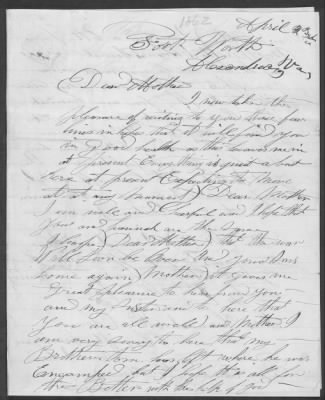 1862
April 2
Fort Worth
Alexandria Va
Dear Mother
I now take the
pleasure of writing to you these few
lines in hope that it will find you
in good health as this leaves me in
at present Everything is quiet about
here at present Expecting to move
at any moment Dear Mother
I am well and and I hope that
you and are the same
Dear Mother that the war
will soon be over and
home again Mother it gives me
great pleasure to hear from you
and my to hear that
you are all well and Mother I
am very sorry to hear that my
Brother was left where he was
encamped but I hope it is all for
the Better with the help of God